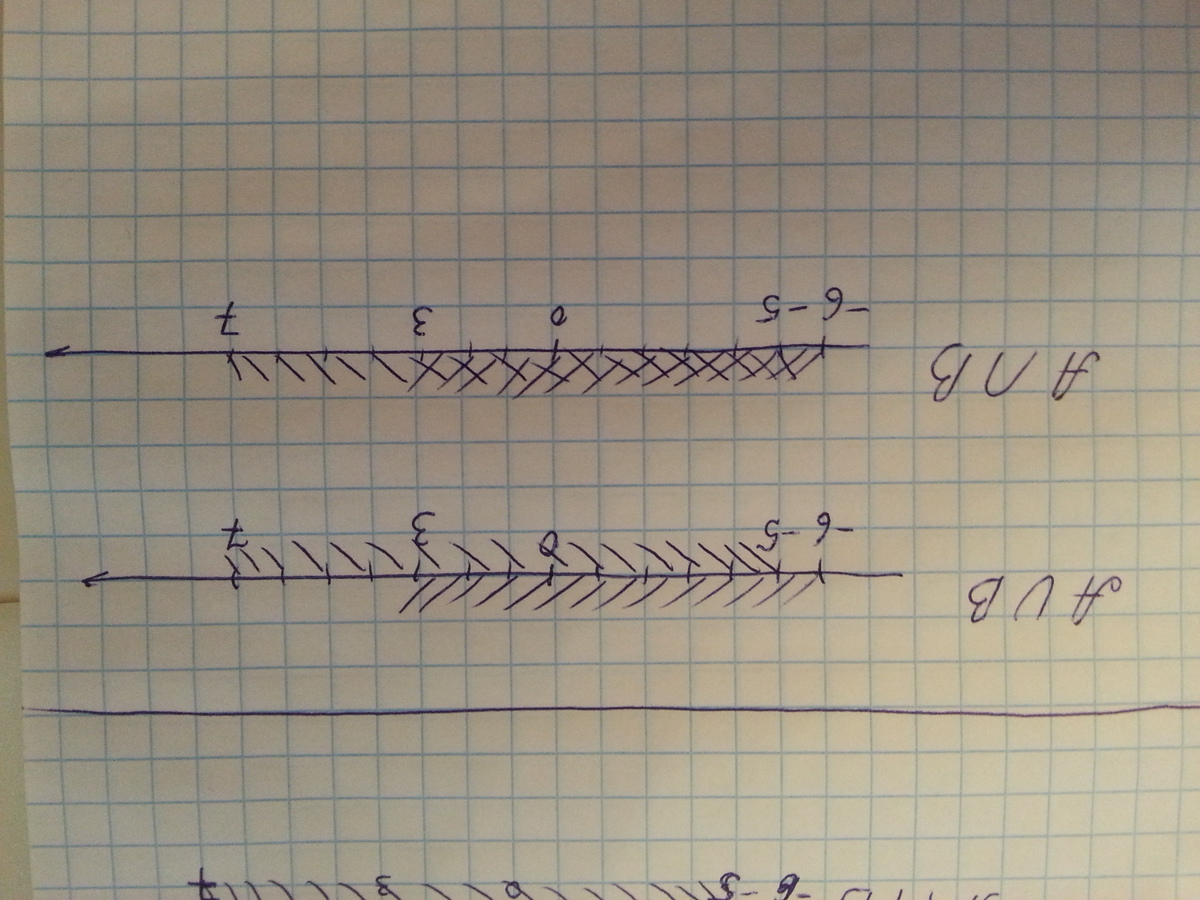 -6 -5 0 3 7
A ∩ B
-6 -5 0 3 7
A ∪ B
-6 -5 0 3 7